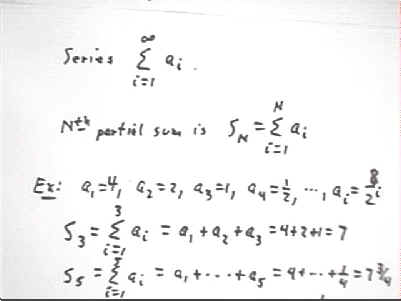 Series ∑_{i=1}^{∞} a_i .
Nth partial sum is S_N = ∑_{i=1}^{N} a_i
Ex: a_1=4, a_2=2, a_3=1, a_4=1/2, ..., a_i=8/2^i
S_3 = ∑_{i=1}^{3} a_i = a_1+a_2+a_3 = 4+2+1=7
S_5 = ∑_{i=1}^{5} a_i = a_1+...+a_5 = 4+...+1/4=7 3/4